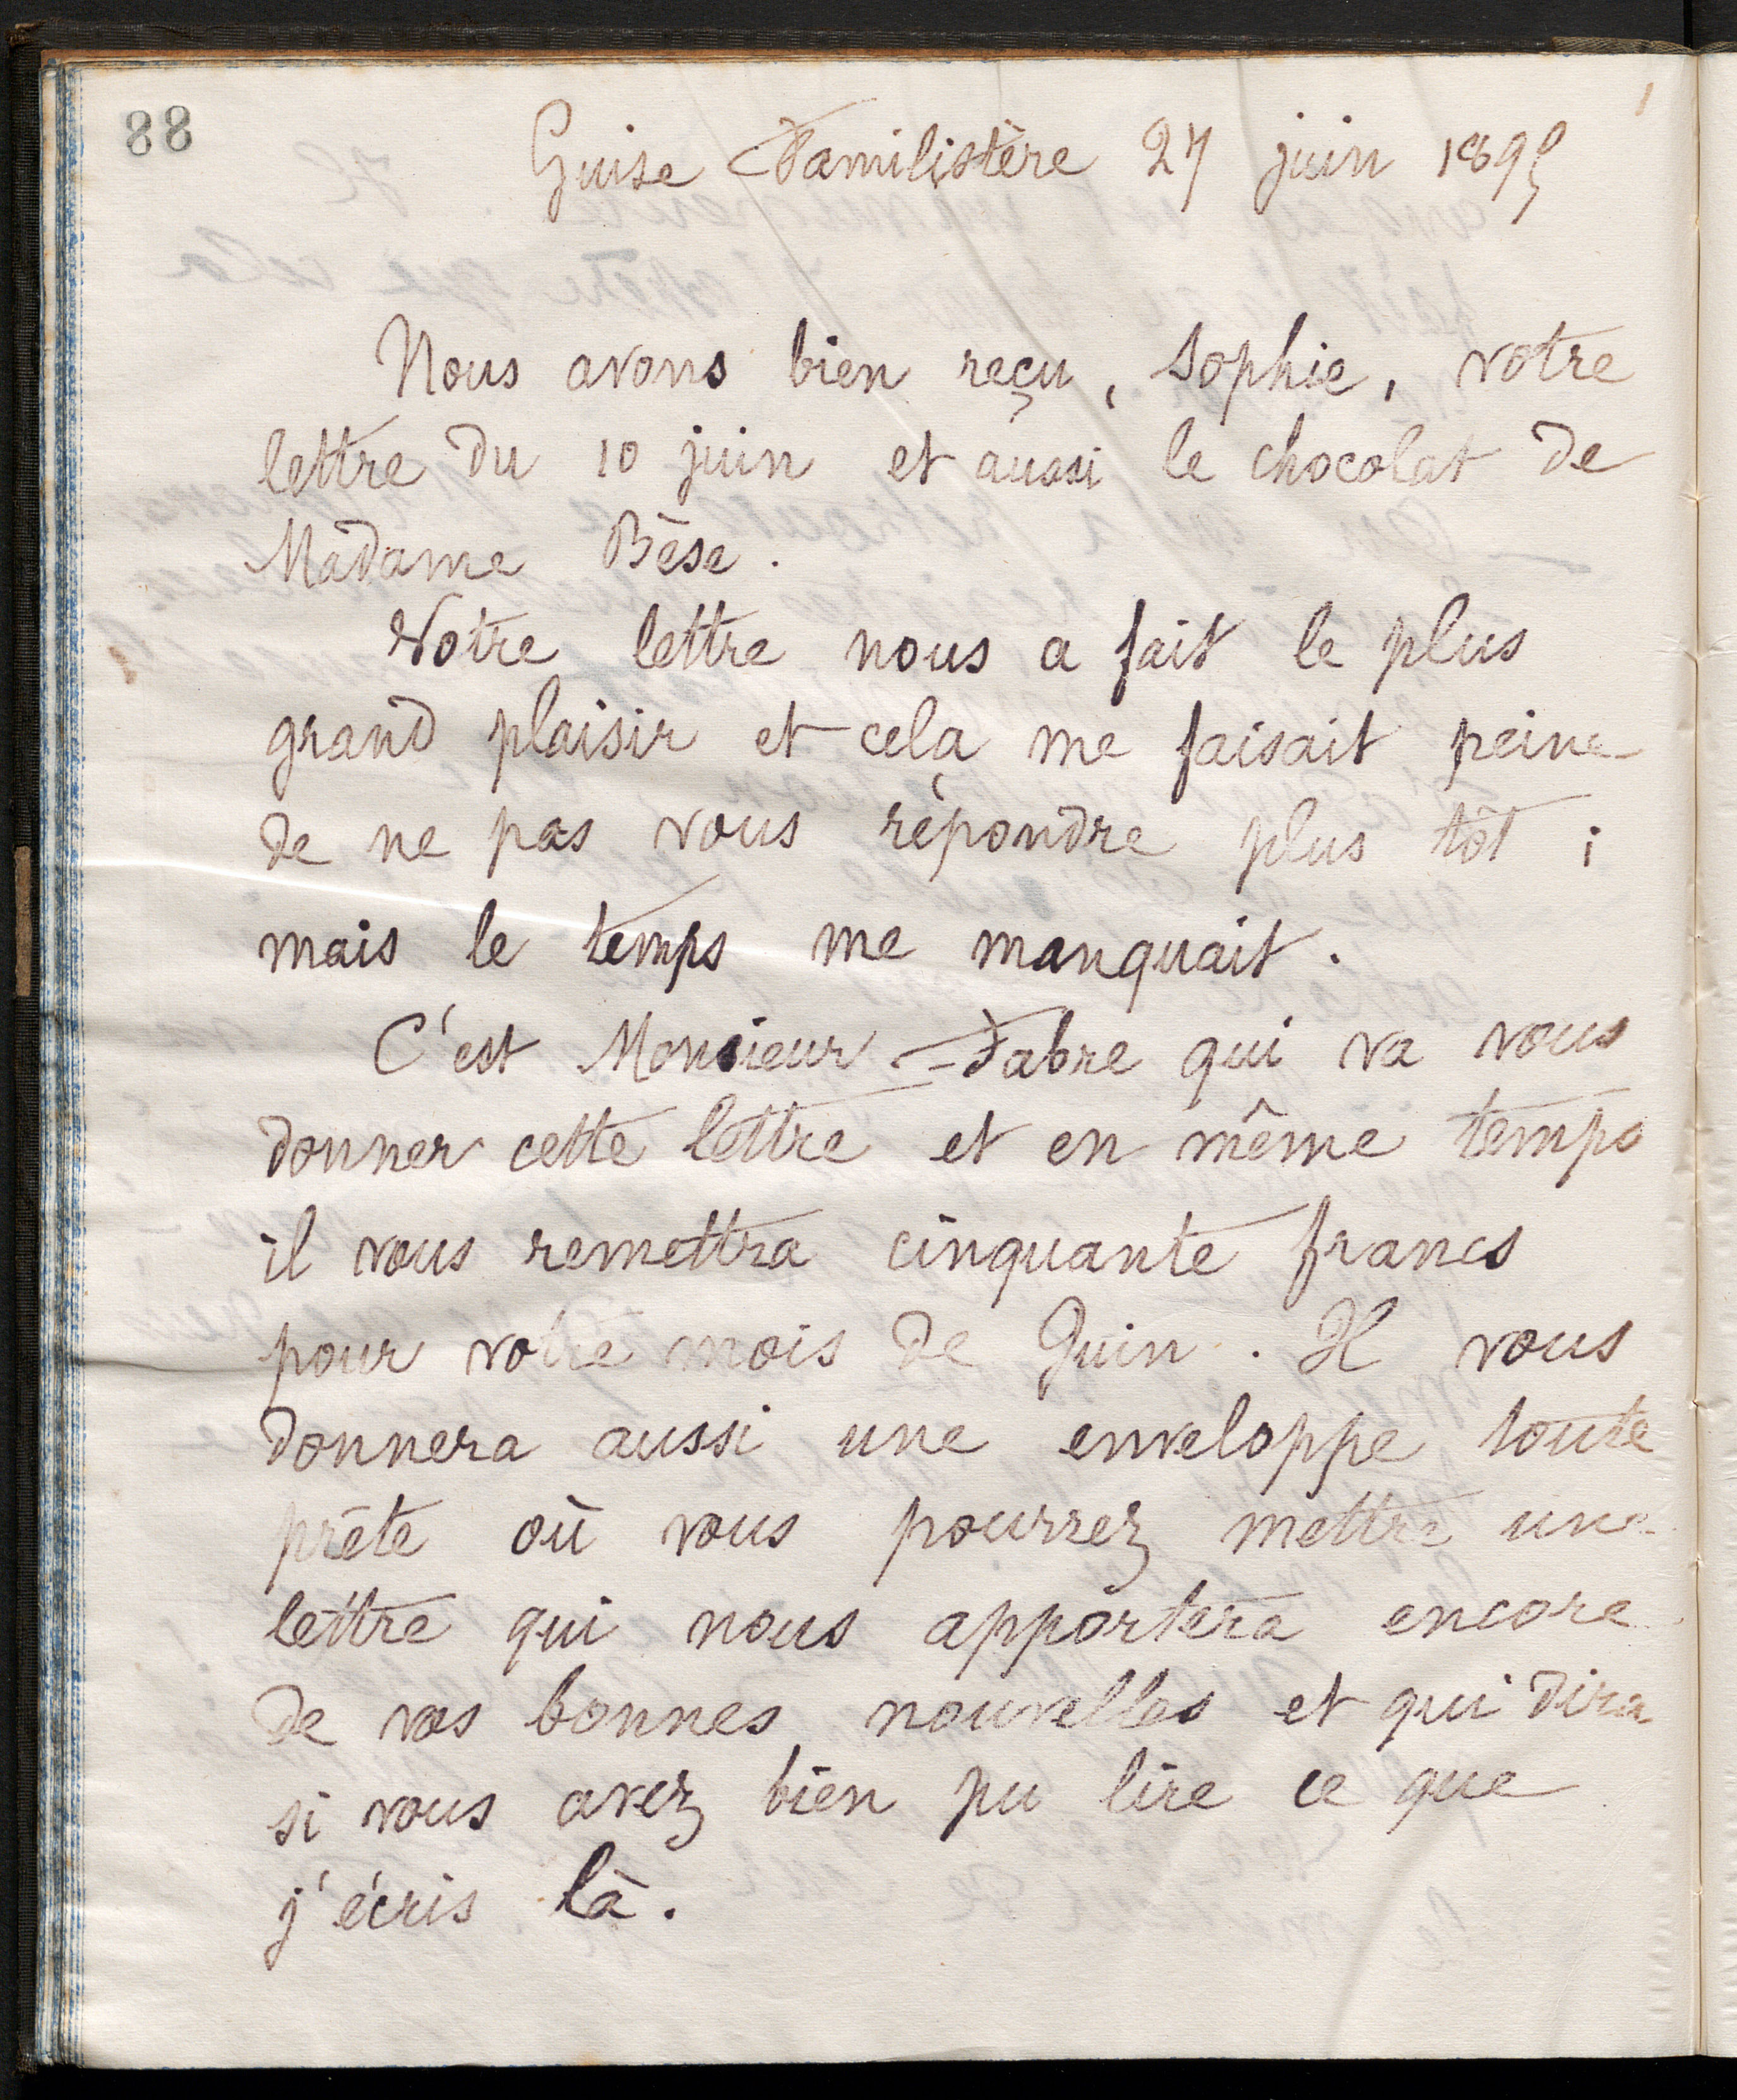 88
Guise Familistère 27 juin 1895
Nous avons bien reçu, Sophie, votre
lettre du 10 juin et aussi le chocolat de
Madame Bèse.
Votre lettre nous a fait le plus
grand plaisir et cela me faisait peine
de ne pas vous répondre plus tôt ;
mais le temps me manquait.
C'est Monsieur Fabre qui va vous
donner cette lettre et en même temps
il vous remettra cinquante francs
pour votre mois de Juin. Il vous
donnera aussi une enveloppe toute
prête où vous pourrez mettre une
lettre qui nous apportera encore
de vos bonnes nouvelles et qui dira
si vous avez bien pu lire ce que
j'écris là.